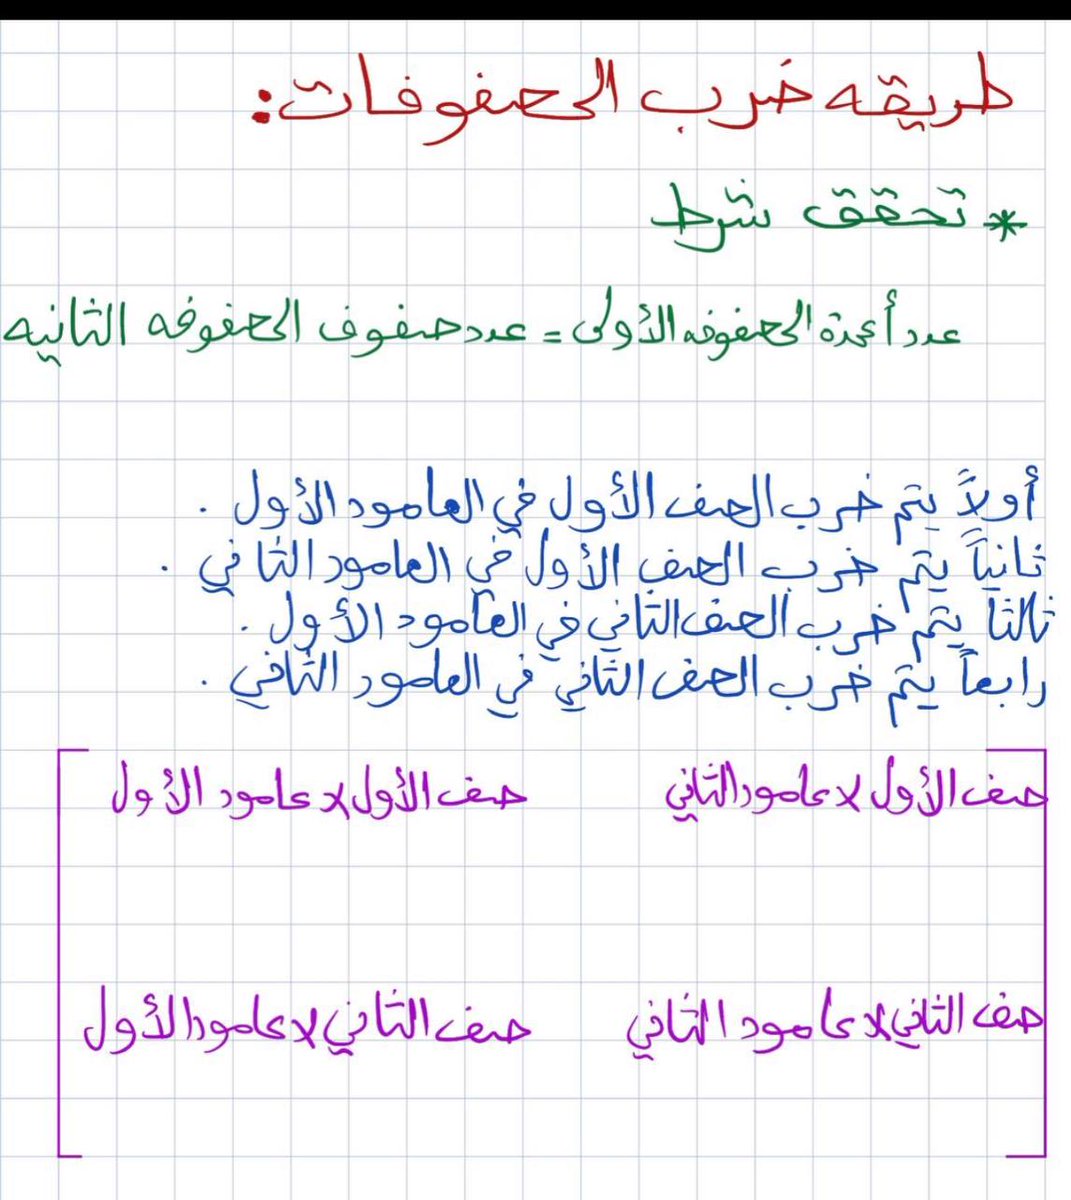 طريقه ضرب المصفوفات:
* تحقق شرط
عدد أعمدة المصفوفه الأولى = عدد صفوف المصفوفه الثانيه
أولاً يتم ضرب الصف الأول في العامود الأول .
ثانياً يتم ضرب الصف الأول في العامود الثاني .
ثالثاً يتم ضرب الصف الثاني في العامود الأول .
رابعاً يتم ضرب الصف الثاني في العامود الثاني .
صف الأول x عامود الأول
صف الأول x عامود الثاني
صف الثاني x عامود الأول
صف الثاني x عامود الثاني